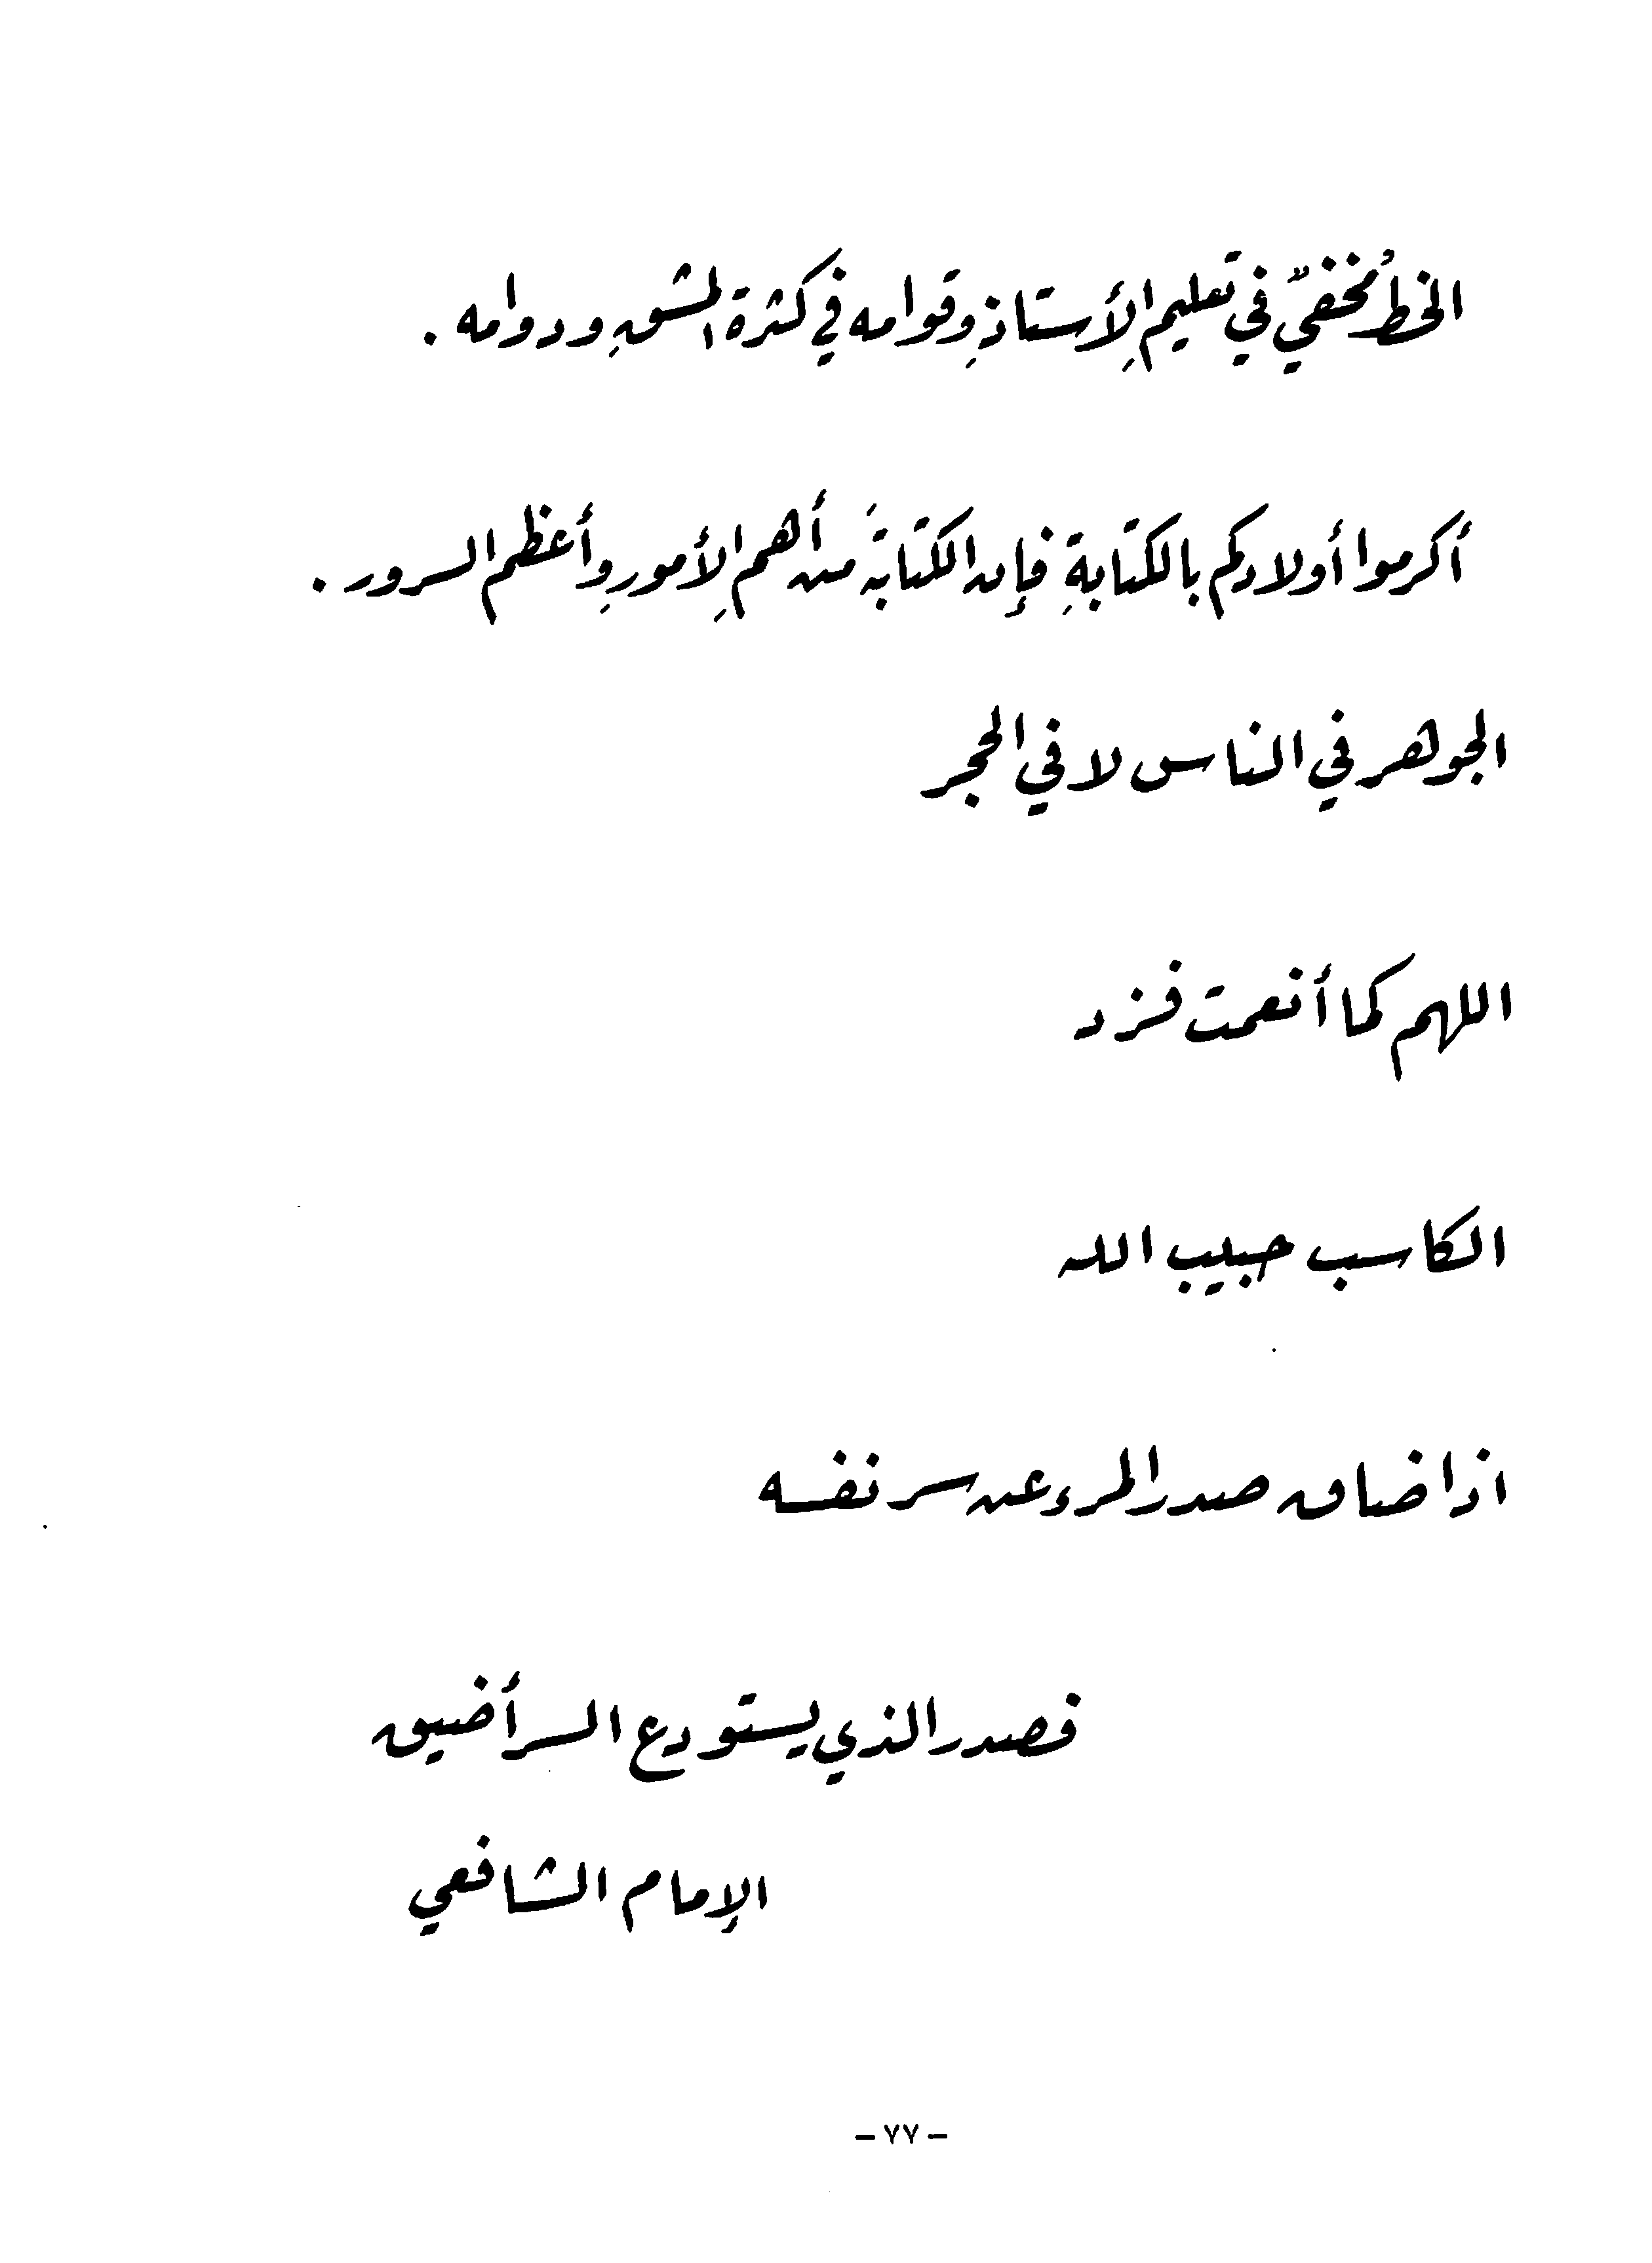 الخطُ مخفيٌّ في تعليم الأستاذِ وقوامه في كثرة المشقِ ودوامه .
أكرموا أولادكم بالكتابةِ فإن الكتابةَ من أهم الأمورِ وأعظم السرور .
الجوهر في الناس لا في الحجر
اللهم كما أنعمت فزد
الكاسب حبيب الله
اذا ضاق صدر المرء عن سر نفسه
فصدر الذي يستودع السر أضيق
الإمام الشافعي
- ٧٧ -